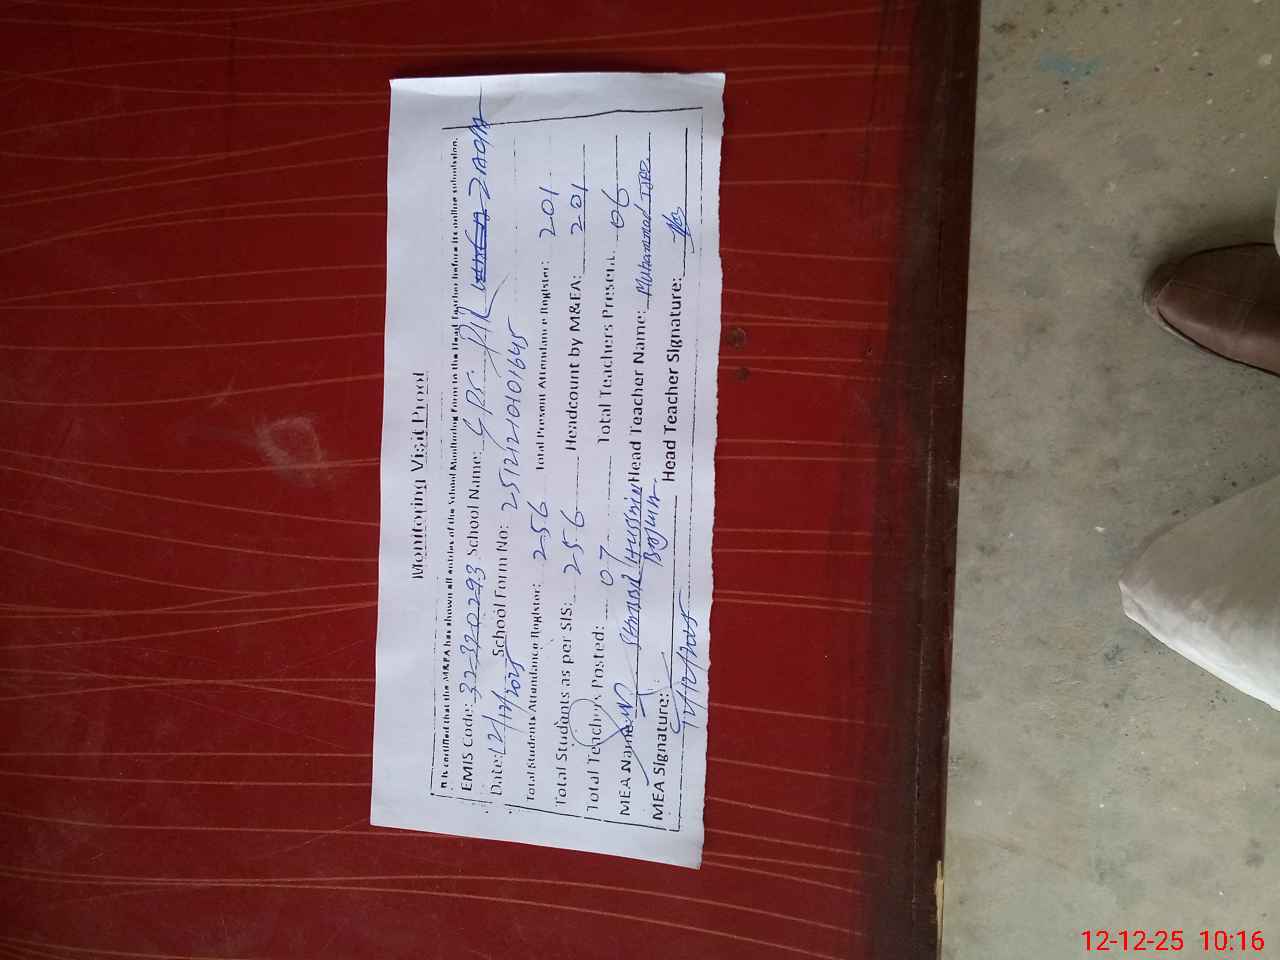 Monitoring Visit Proof
It is certified that the M&EA has shown all entries of the School Monitoring Form to the Head Teacher before its online submission.
EMIS Code: 32320293 School Name: GPS PIR ZAQIA
Date: 12/12/2025 School Form No: 25121210101645
Total Students Attendance Register: 256 Total Present Attendance Register: 201
Total Students as per SIS: 256 Headcount by M&EA: 201
Total Teachers Posted: 07 Total Teachers Present: 06
MEA Name: Hussain Head Teacher Name: Muhammad
MEA Signature: Head Teacher Signature:
12/12/2025
12-12-25 10:16